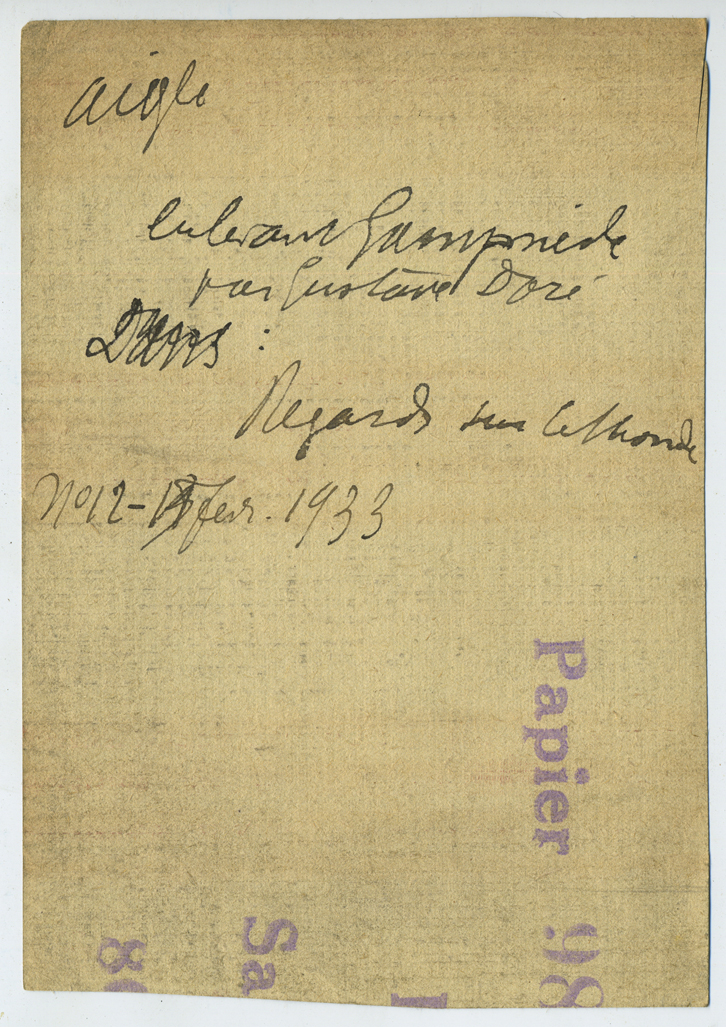 aigle
enlevant Gampnède
par Gustave Doré
Dans :
Regards sur le Monde
No 12 - 15 fevr. 1933
Papier 98
Sa